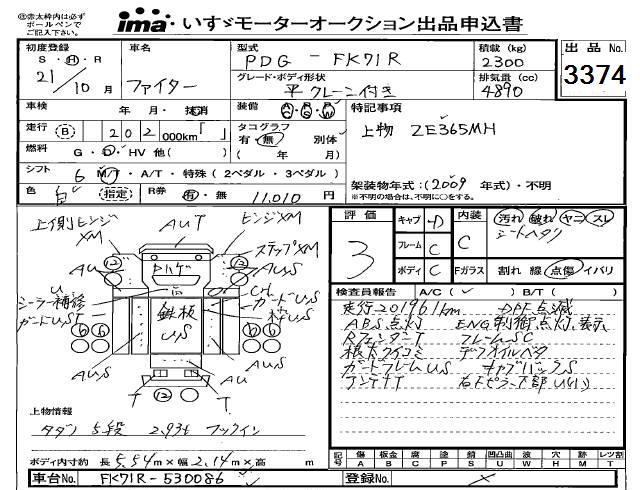 ◎赤太枠内は必ず
ボールペンで
ご記入下さい。
ima いすゞモーターオークション出品申込書
初度登録
S・H・R
21/10 月
車名
ファイター
型式
PDG - FK71R
グレード・ボディ形状
平 クレーン付き
積載 (kg)
2300
排気量 (cc)
4890
出品 No.
3374
車検 年 月・抹消
装備 A/C P/S P/W
特記事項
走行 (B) 202 000km「 」
タコグラフ
有・無 別体
( 年 月)
上物 ZE365MH
燃料 G・D・HV 他( )
シフト 6 M/T・A/T・特殊 (2ペダル・3ペダル)
架装物年式:(2009 年式)・不明
※不明の場合は、不明に○をする。
色 白 (指定) R券 有・無 11,010 円
上イ則エンジン
XM
AUT
エンジンXM
ステップXM
AU
AUS
シーラー補修
ガードUST
鉄板
US
ガードUS
AUS
AUS
T
T
上物情報
タダノ 5段 2.93t フックイン
ボディ内寸約 長 5.54 m×幅 2.14 m×高 m
評価
3
キャブ D
フレーム C
ボディ C
内装
C
汚れ 破れ ヤニ スレ
シートヘタリ
Fガラス 割れ 線 点傷 イバリ
検査員報告 A/C ( ✓ ) B/T ( )
走行201961km DPF点滅
ABS点灯 ENG制御点灯、表示
Rフェンダー T フレームSC
根太クイコミ デフオイルベタ
ガートフレームUS キャブバックS
アンテナT 右下ピラー下部U(小)
記号 傷 板金 腐 塗 錆 凹凸曲 波 穴 跡 レツ割
A B C P S U W H M T
車台No. FK71R-530086
登録No.